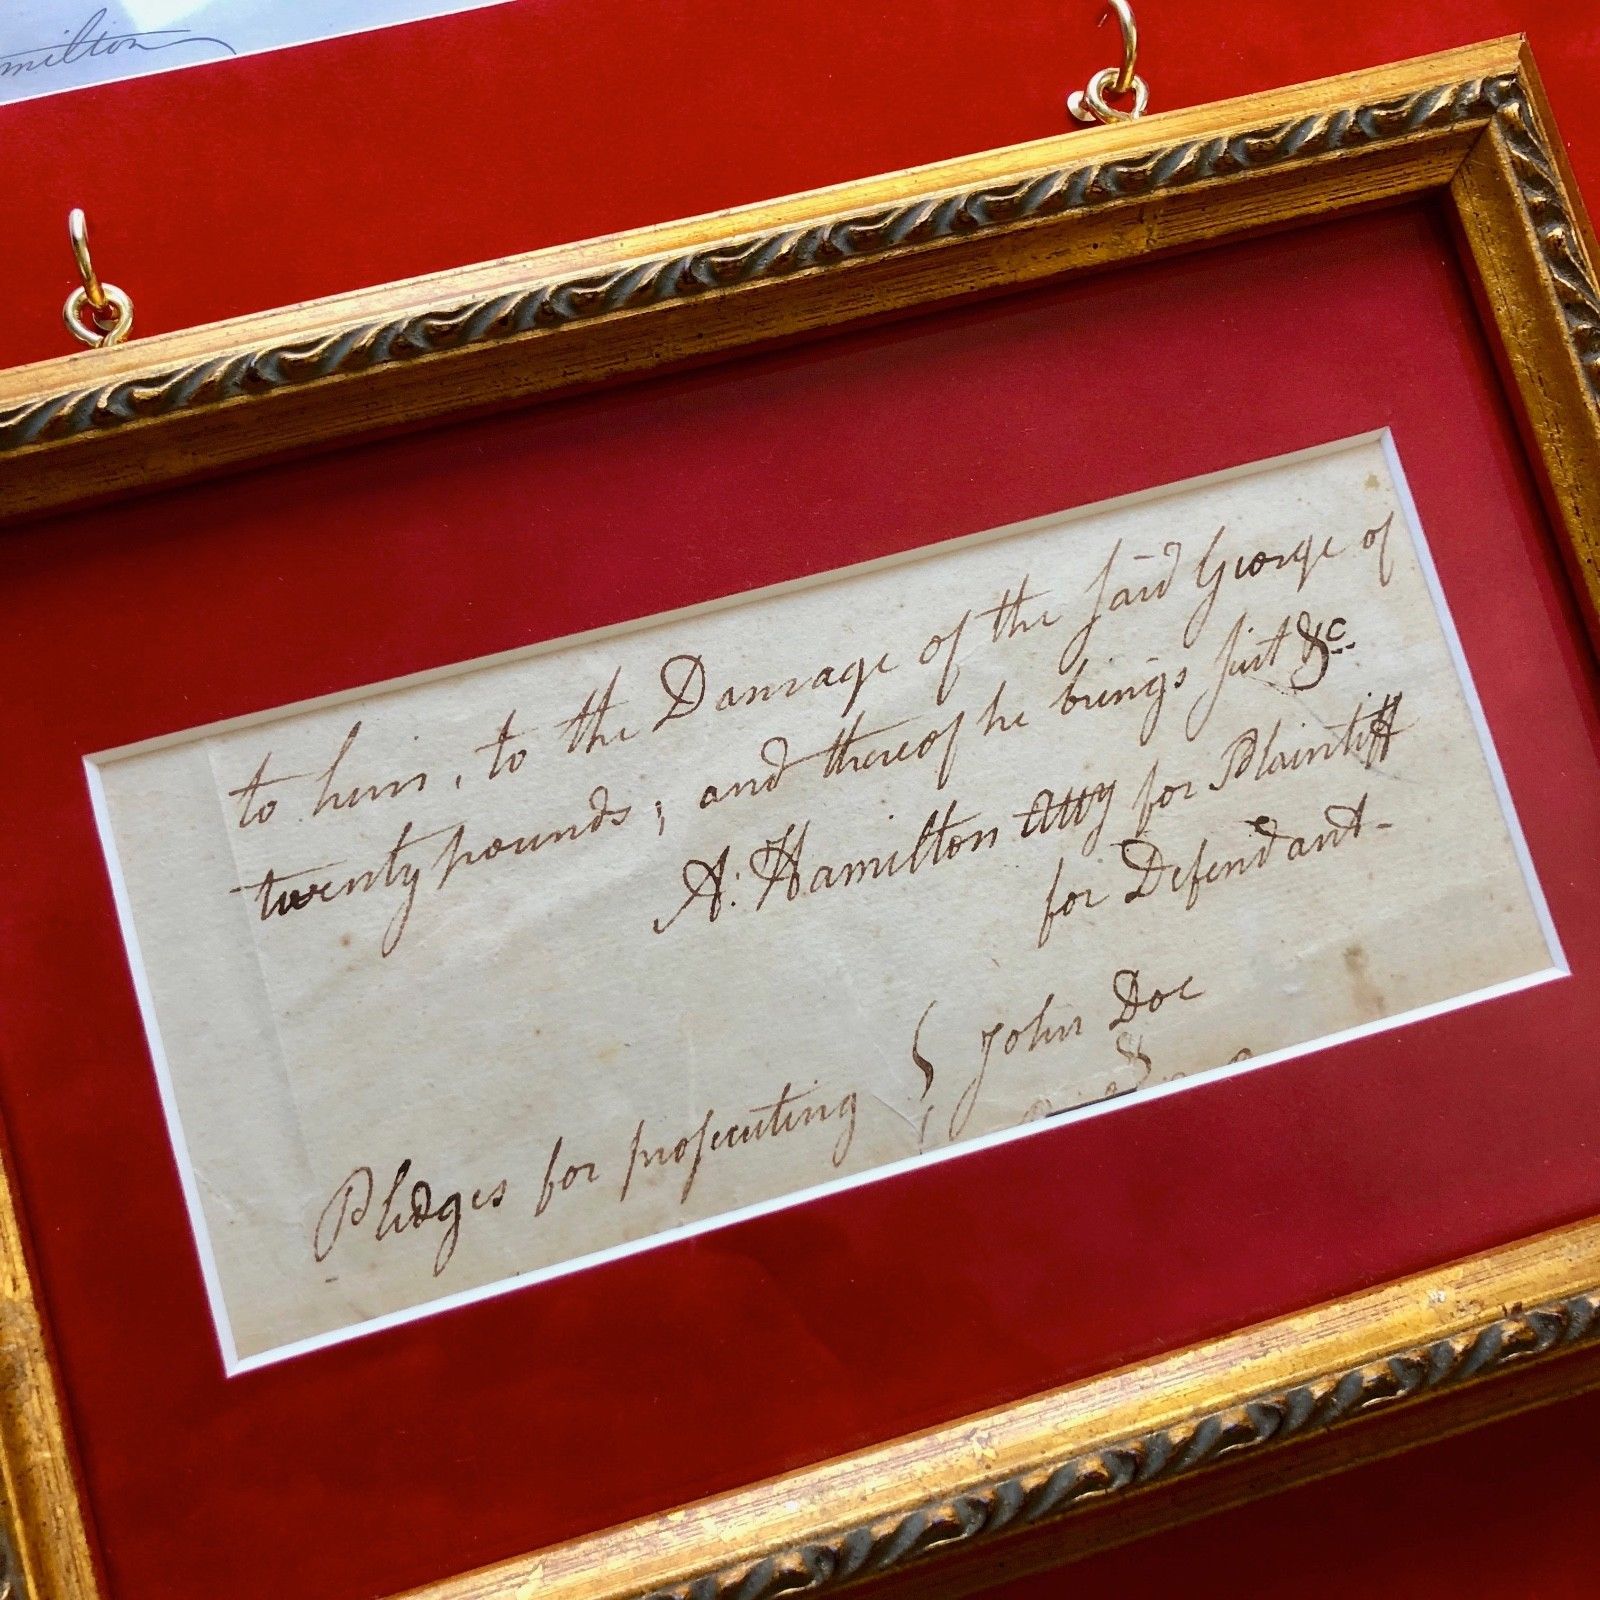 milton
to him, to the Damage of the said George of
twenty pounds; and thereof he brings suit &c
A: Hamilton Atty for Plaintiff
for Defendant-
Pledges for prosecuting { John Doe
&